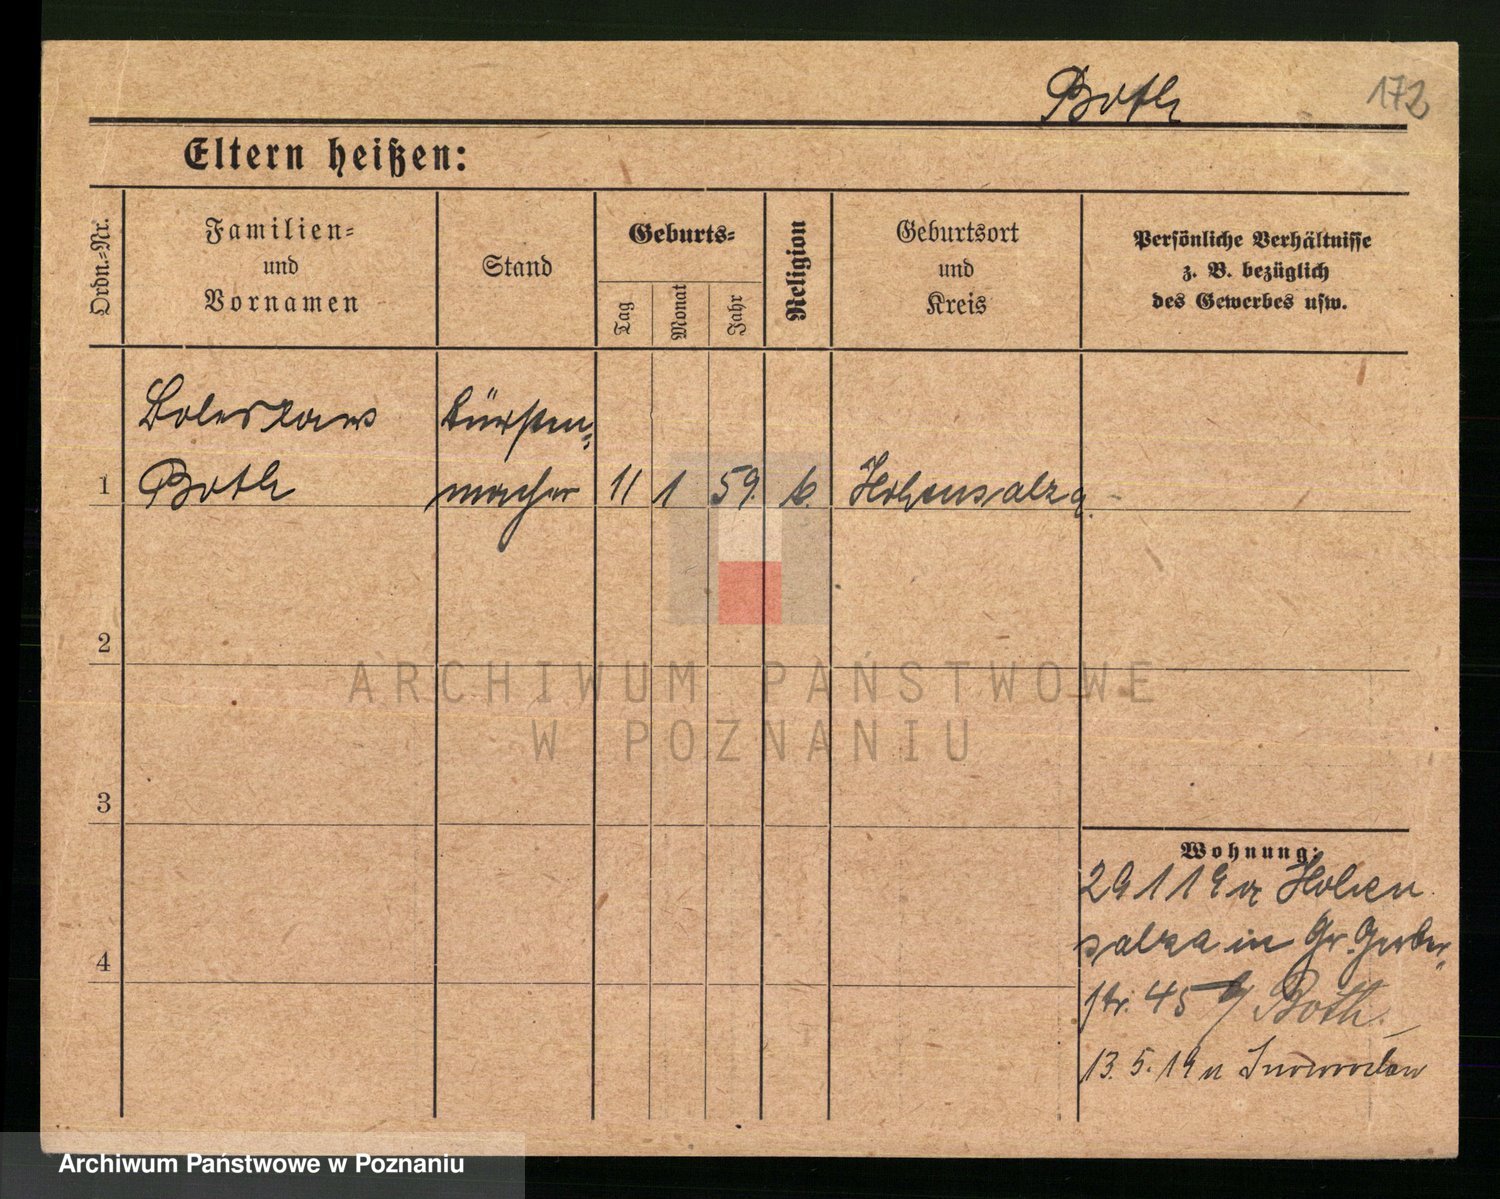 Both
172
Eltern heißen:
Ordn.-Nr.
Familien-
und
Vornamen
Stand
Geburts-
Tag
Monat
Jahr
Religion
Geburtsort
und
Kreis
Persönliche Verhältnisse
z. B. bezüglich
des Gewerbes usw.
Boleslaus Bürsten-
1 Both macher 11 1 59. k. Hohensalza.
2
3
4
Wohnung:
29 1 19 Hohen
salza in Gr. Gerber-
str. 45 b/ Both.
13. 5. 19 n Inowroclaw
ARCHIWUM PAŃSTWOWE
W POZNANIU
Archiwum Państwowe w Poznaniu